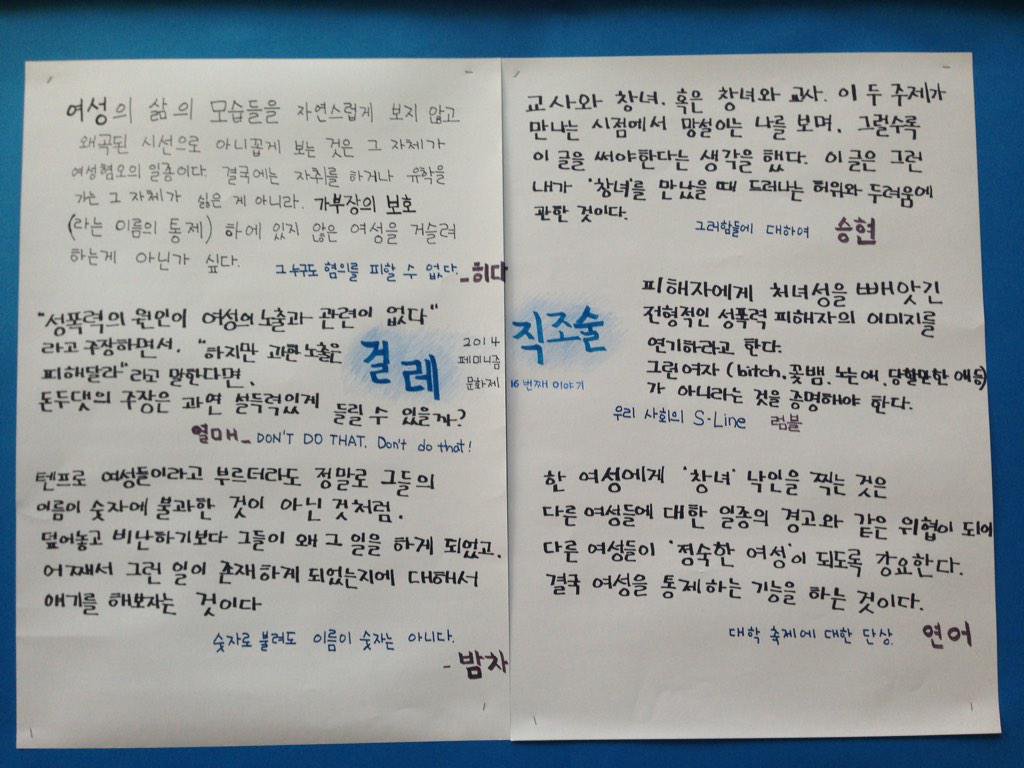 여성의 삶의 모습들을 자연스럽게 보지 않고
왜곡된 시선으로 아니꼽게 보는 것은 그 자체가
여성혐오의 일종이다. 결국에는 자취를 하거나 유학을
가는 그 자체가 싫은 게 아니라. 가부장의 보호
(라는 이름의 통제) 하에 있지 않은 여성을 거슬려
하는게 아닌가 싶다.
그 누구도 혐의를 피할 수 없다. - 히다
"성폭력의 원인이 여성의 노출과 관련이 없다"
라고 주장하면서, "하지만 과한 노출은
피해달라"라고 말한다면,
돈두댓의 주장은 과연 설득력있게 들릴 수 있을까?
열매_ DON'T DO THAT. Don't do that!
텐프로 여성들이라고 부르더라도 정말로 그들의
이름이 숫자에 불과한 것이 아닌 것처럼.
덮어놓고 비난하기보다 그들이 왜 그 일을 하게 되었고,
어째서 그런 일이 존재하게 되었는지에 대해서
얘기를 해보자는 것이다
숫자로 불려도 이름이 숫자는 아니다.
- 밤차
걸레 직조술
2014
페미니즘
문화제 16번째 이야기
교사와 창녀. 혹은 창녀와 교사. 이 두 주제가
만나는 시점에서 망설이는 나를 보며, 그럴수록
이 글을 써야한다는 생각을 했다. 이 글은 그런
내가 '창녀'를 만났을 때 드러나는 허위와 두려움에
관한 것이다.
그러함들에 대하여 승현
피해자에게 처녀성을 빼앗긴
전형적인 성폭력 피해자의 이미지를
연기하라고 한다.
그런 여자 (bitch, 꽃뱀, 노는애, 당할만한 애 등)
가 아니라는 것을 증명해야 한다.
우리 사회의 S-Line 럼블
한 여성에게 '창녀' 낙인을 찍는 것은
다른 여성들에 대한 일종의 경고와 같은 위협이 되어
다른 여성들이 '정숙한 여성'이 되도록 강요한다.
결국 여성을 통제하는 기능을 하는 것이다.
대학 축제에 대한 단상. 연어